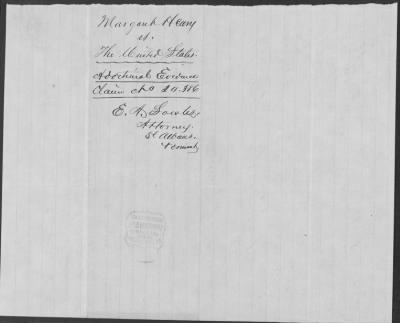 Margaret Henry
vs.
The United States.
Additional Evidence
Claim No
E. A. Sowles
Attorney.
St Albans.
Vermont